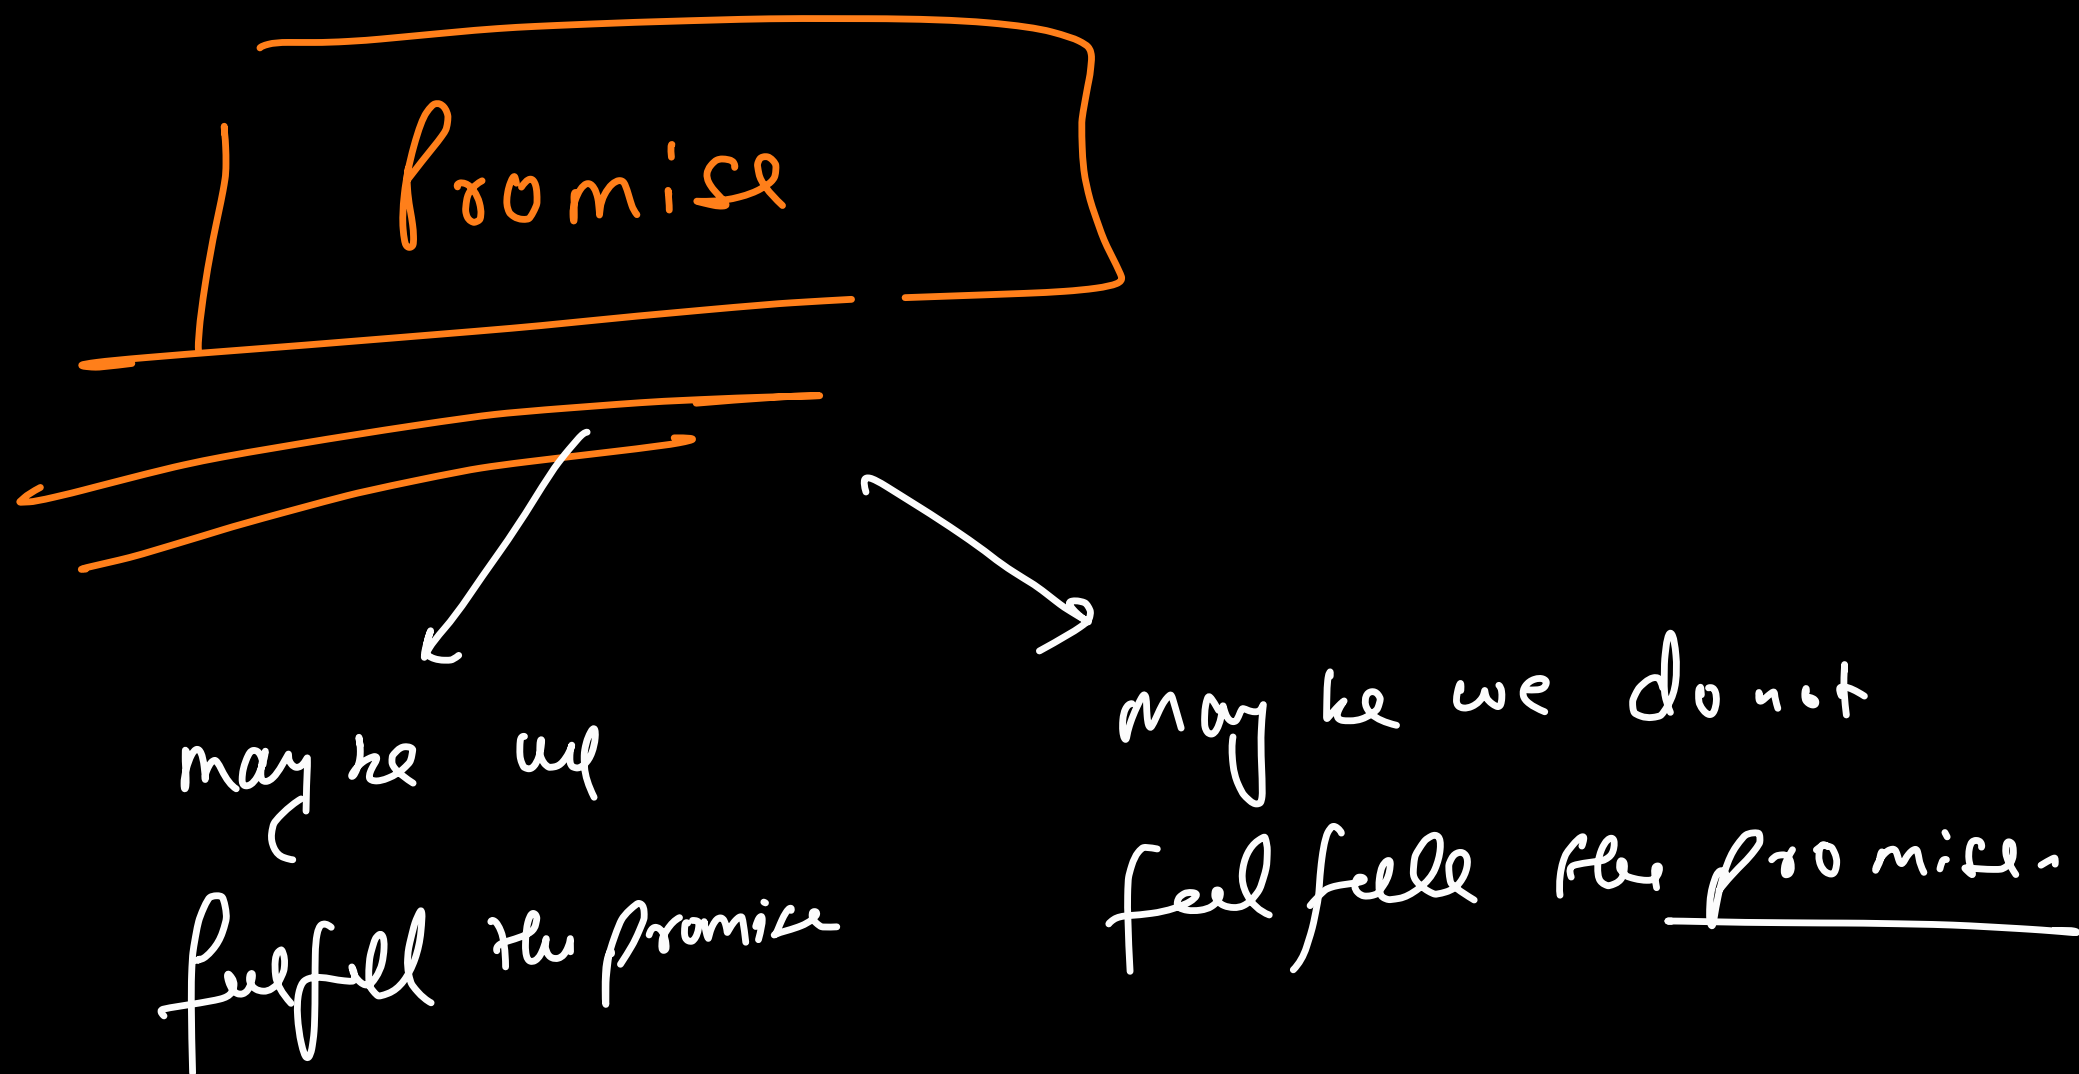 Promise
may be we
fulfill the promise
may be we do not
fulfill the promise.